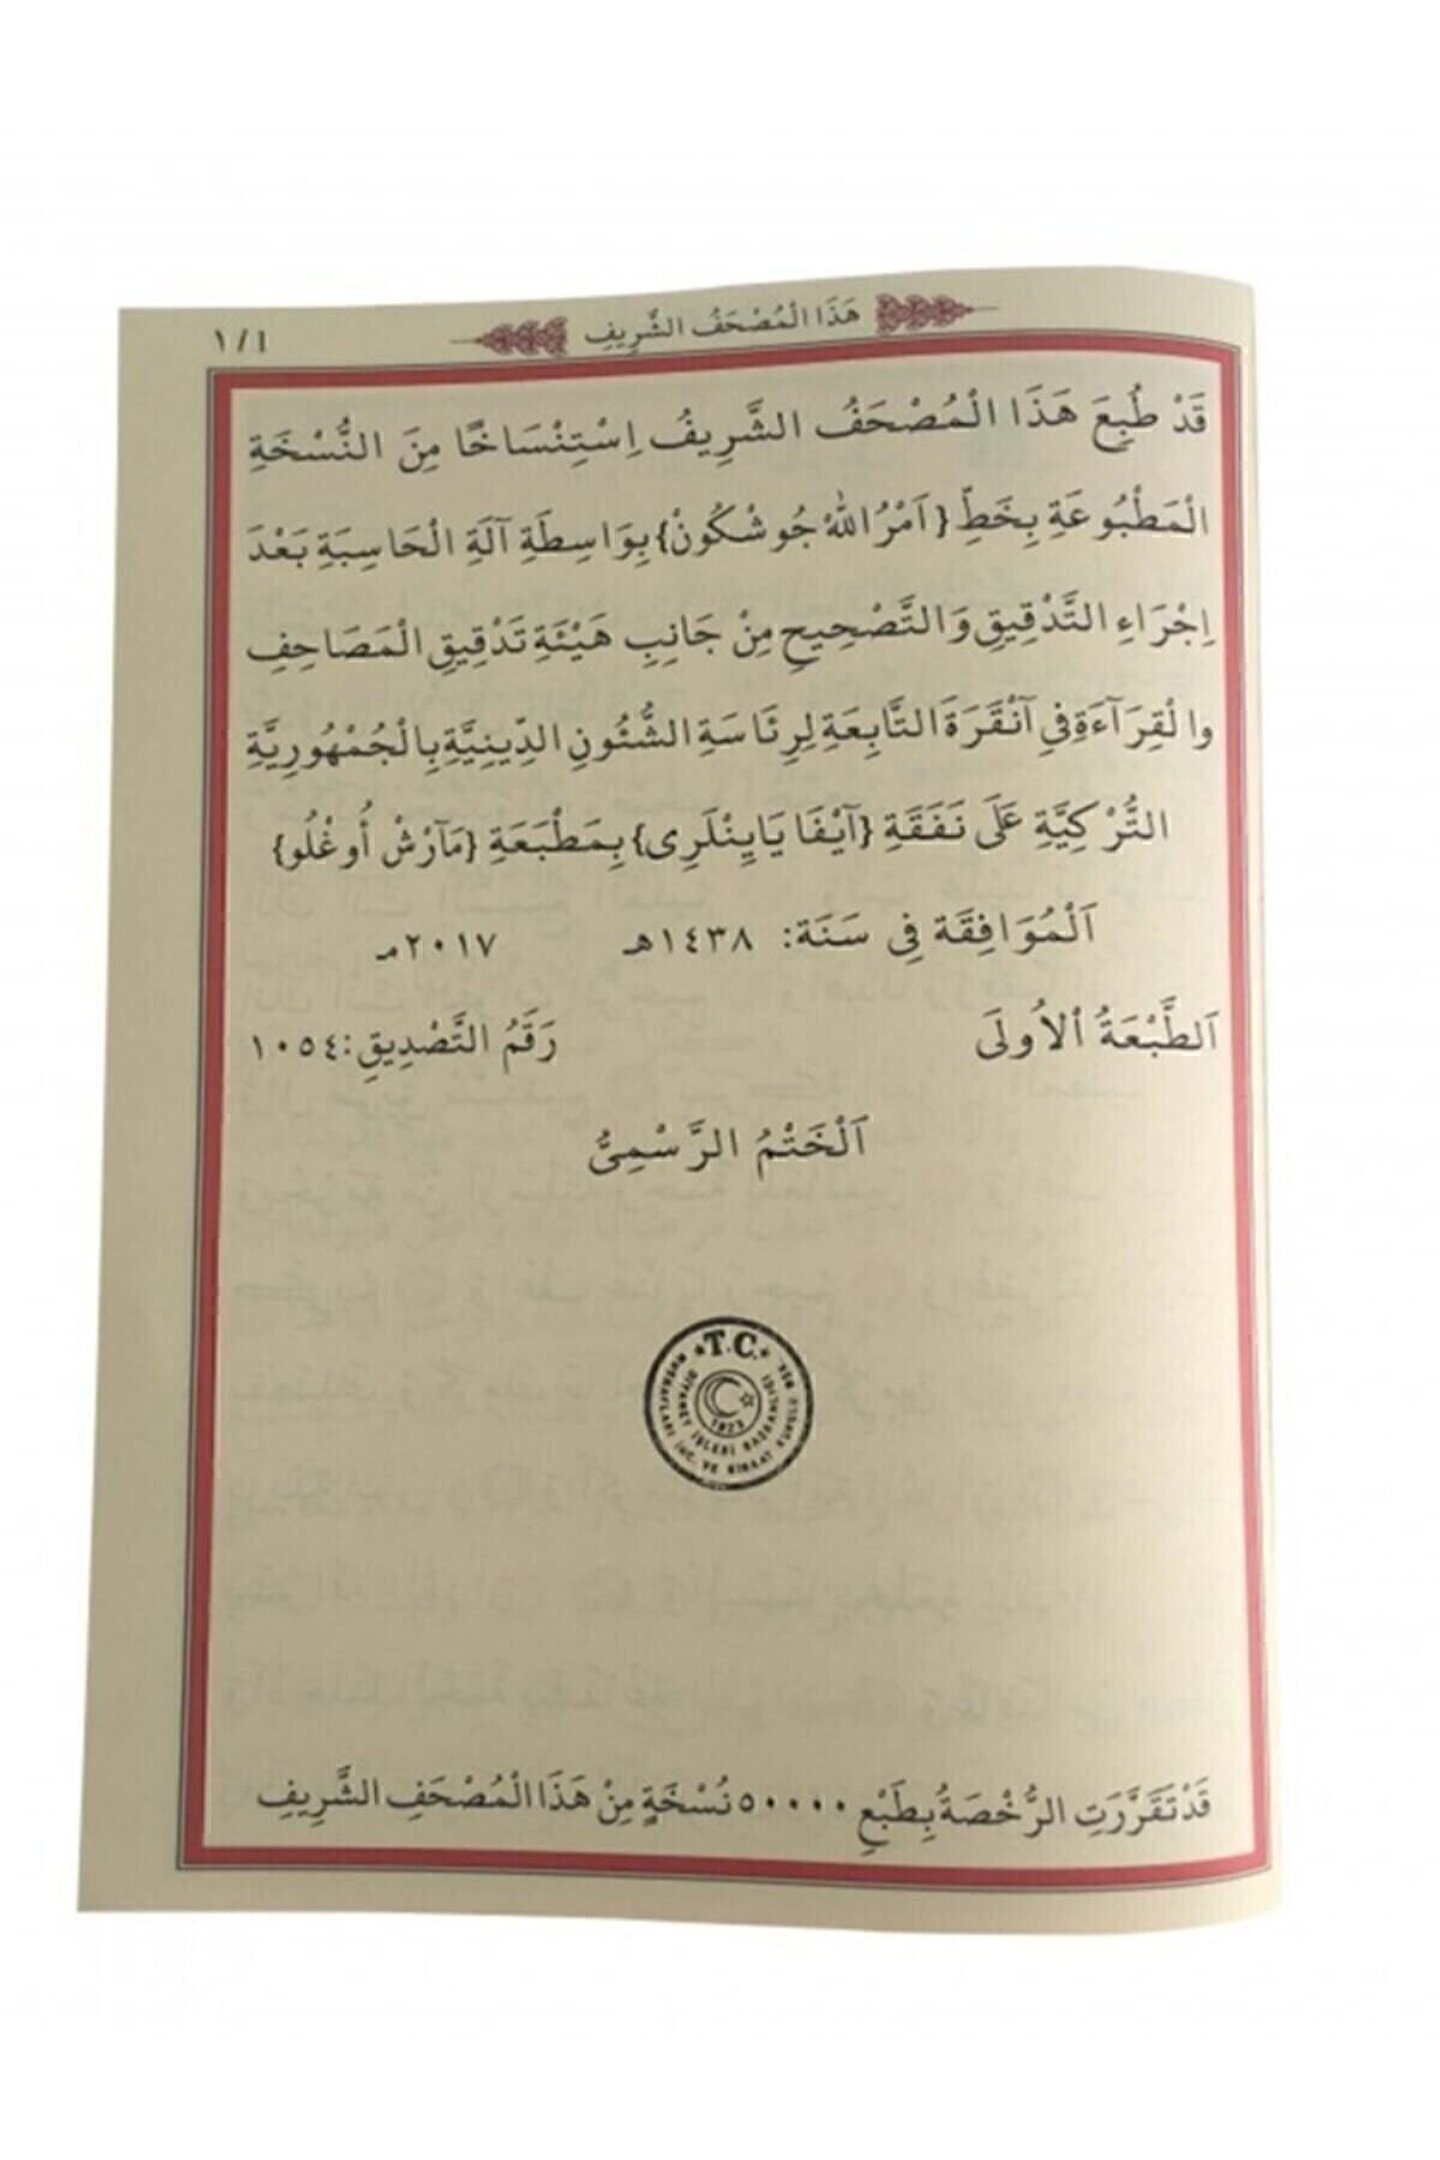 هَذَا الْمُصْحَفُ الشَّرِيفِ
١/١
قَدْ طُبِعَ هَذَا الْمُصْحَفُ الشَّرِيفُ اِسْتِنْسَاخًا مِنَ النُّسْخَةِ
الْمَطْبُوعَةِ بِخَطِّ {اَمْرُ اللهْ جُوشْكُونْ} بِوَاسِطَةِ آلَةِ الْحَاسِبَةِ بَعْدَ
اِجْرَاءِ التَّدْقِيقِ وَالتَّصْحِيحِ مِنْ جَانِبِ هَيْئَةِ تَدْقِيقِ الْمَصَاحِفِ
والْقِرَآءَةِ فِي آنْقَرَةَ التَّابِعَةِ لِرِئَاسَةِ الشُّئُونِ الدِّينِيَّةِ بِالْجُمْهُورِيَّةِ
التُّرْكِيَّةِ عَلَى نَفَقَةِ {آيْفَا يَايِنْلَرِى} بِمَطْبَعَةِ {مَآرْشْ أُوغْلُو}
اَلْمُوَافِقَة فِى سَنَة: ١٤٣٨هـ ٢٠١٧مـ
اَلطَّبْعَةُ الْاُولَى رَقَمُ التَّصْدِيقِ: ١٠٥٤
اَلْخَتْمُ الرَّسْمِىُّ
T.C.
MUSHAFLARI İNC. VE KIRAAT KURULU
DİYANET İŞLERİ BAŞKANLIĞI
1923
قَدْ تَقَرَّرَتِ الرُّخْصَةُ بِطَبْعِ ٥٠٠٠٠ نُسْخَةٍ مِنْ هَذَا الْمُصْحَفِ الشَّرِيفِ